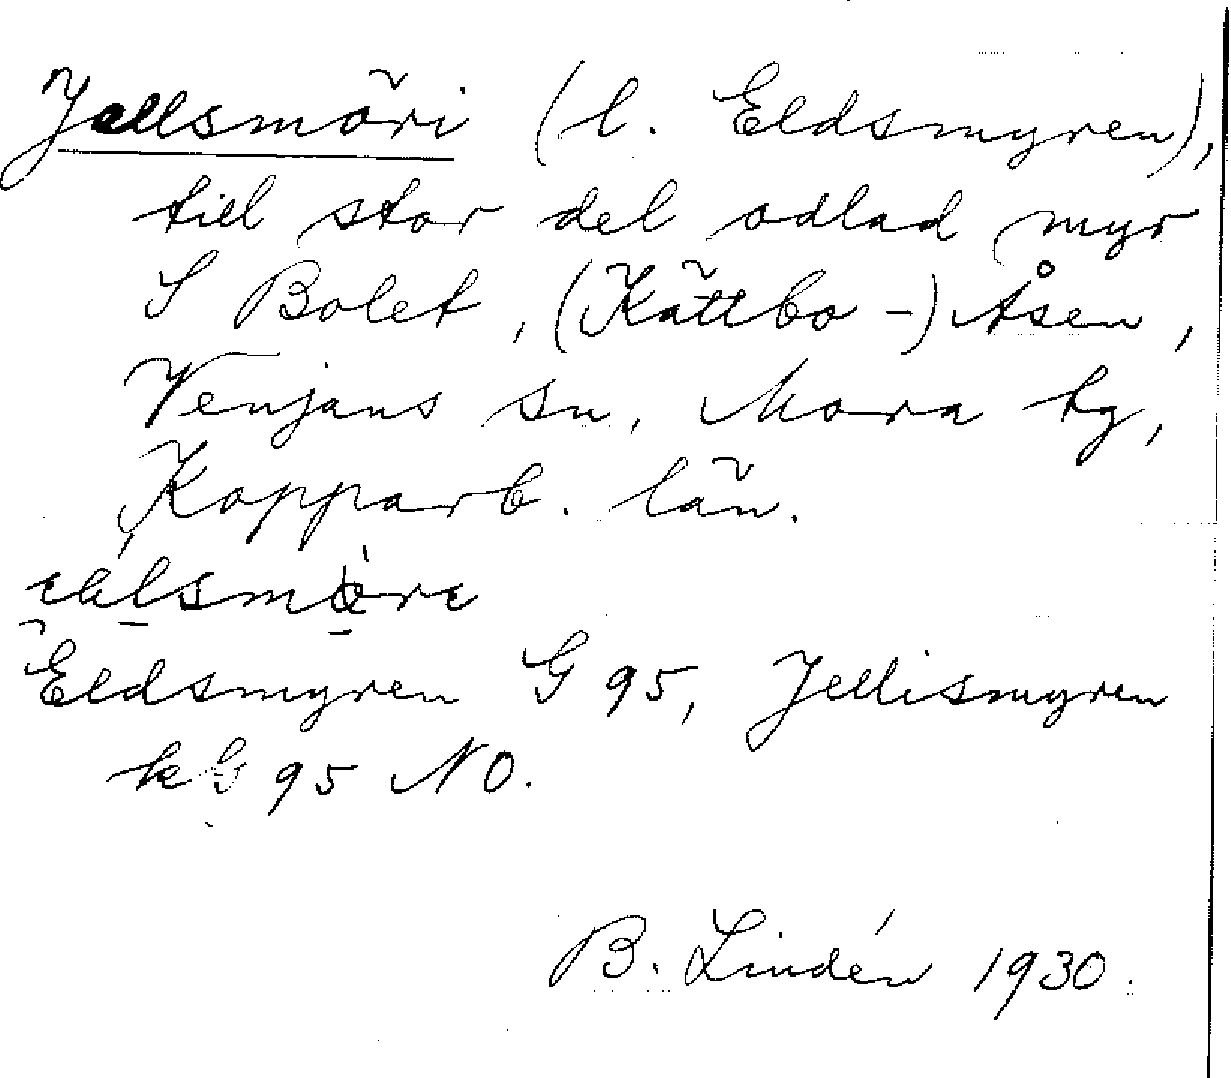 Jellsmöri (l. Eldsmyren),
till stor del odlad myr
S Bolet, (Kättbo-) Åsen,
Venjans sn, Mora tg,
Kopparb. län.
Eldsmyren G 95, Jellismyren
k G 95 NO.
B. Lindén 1930.